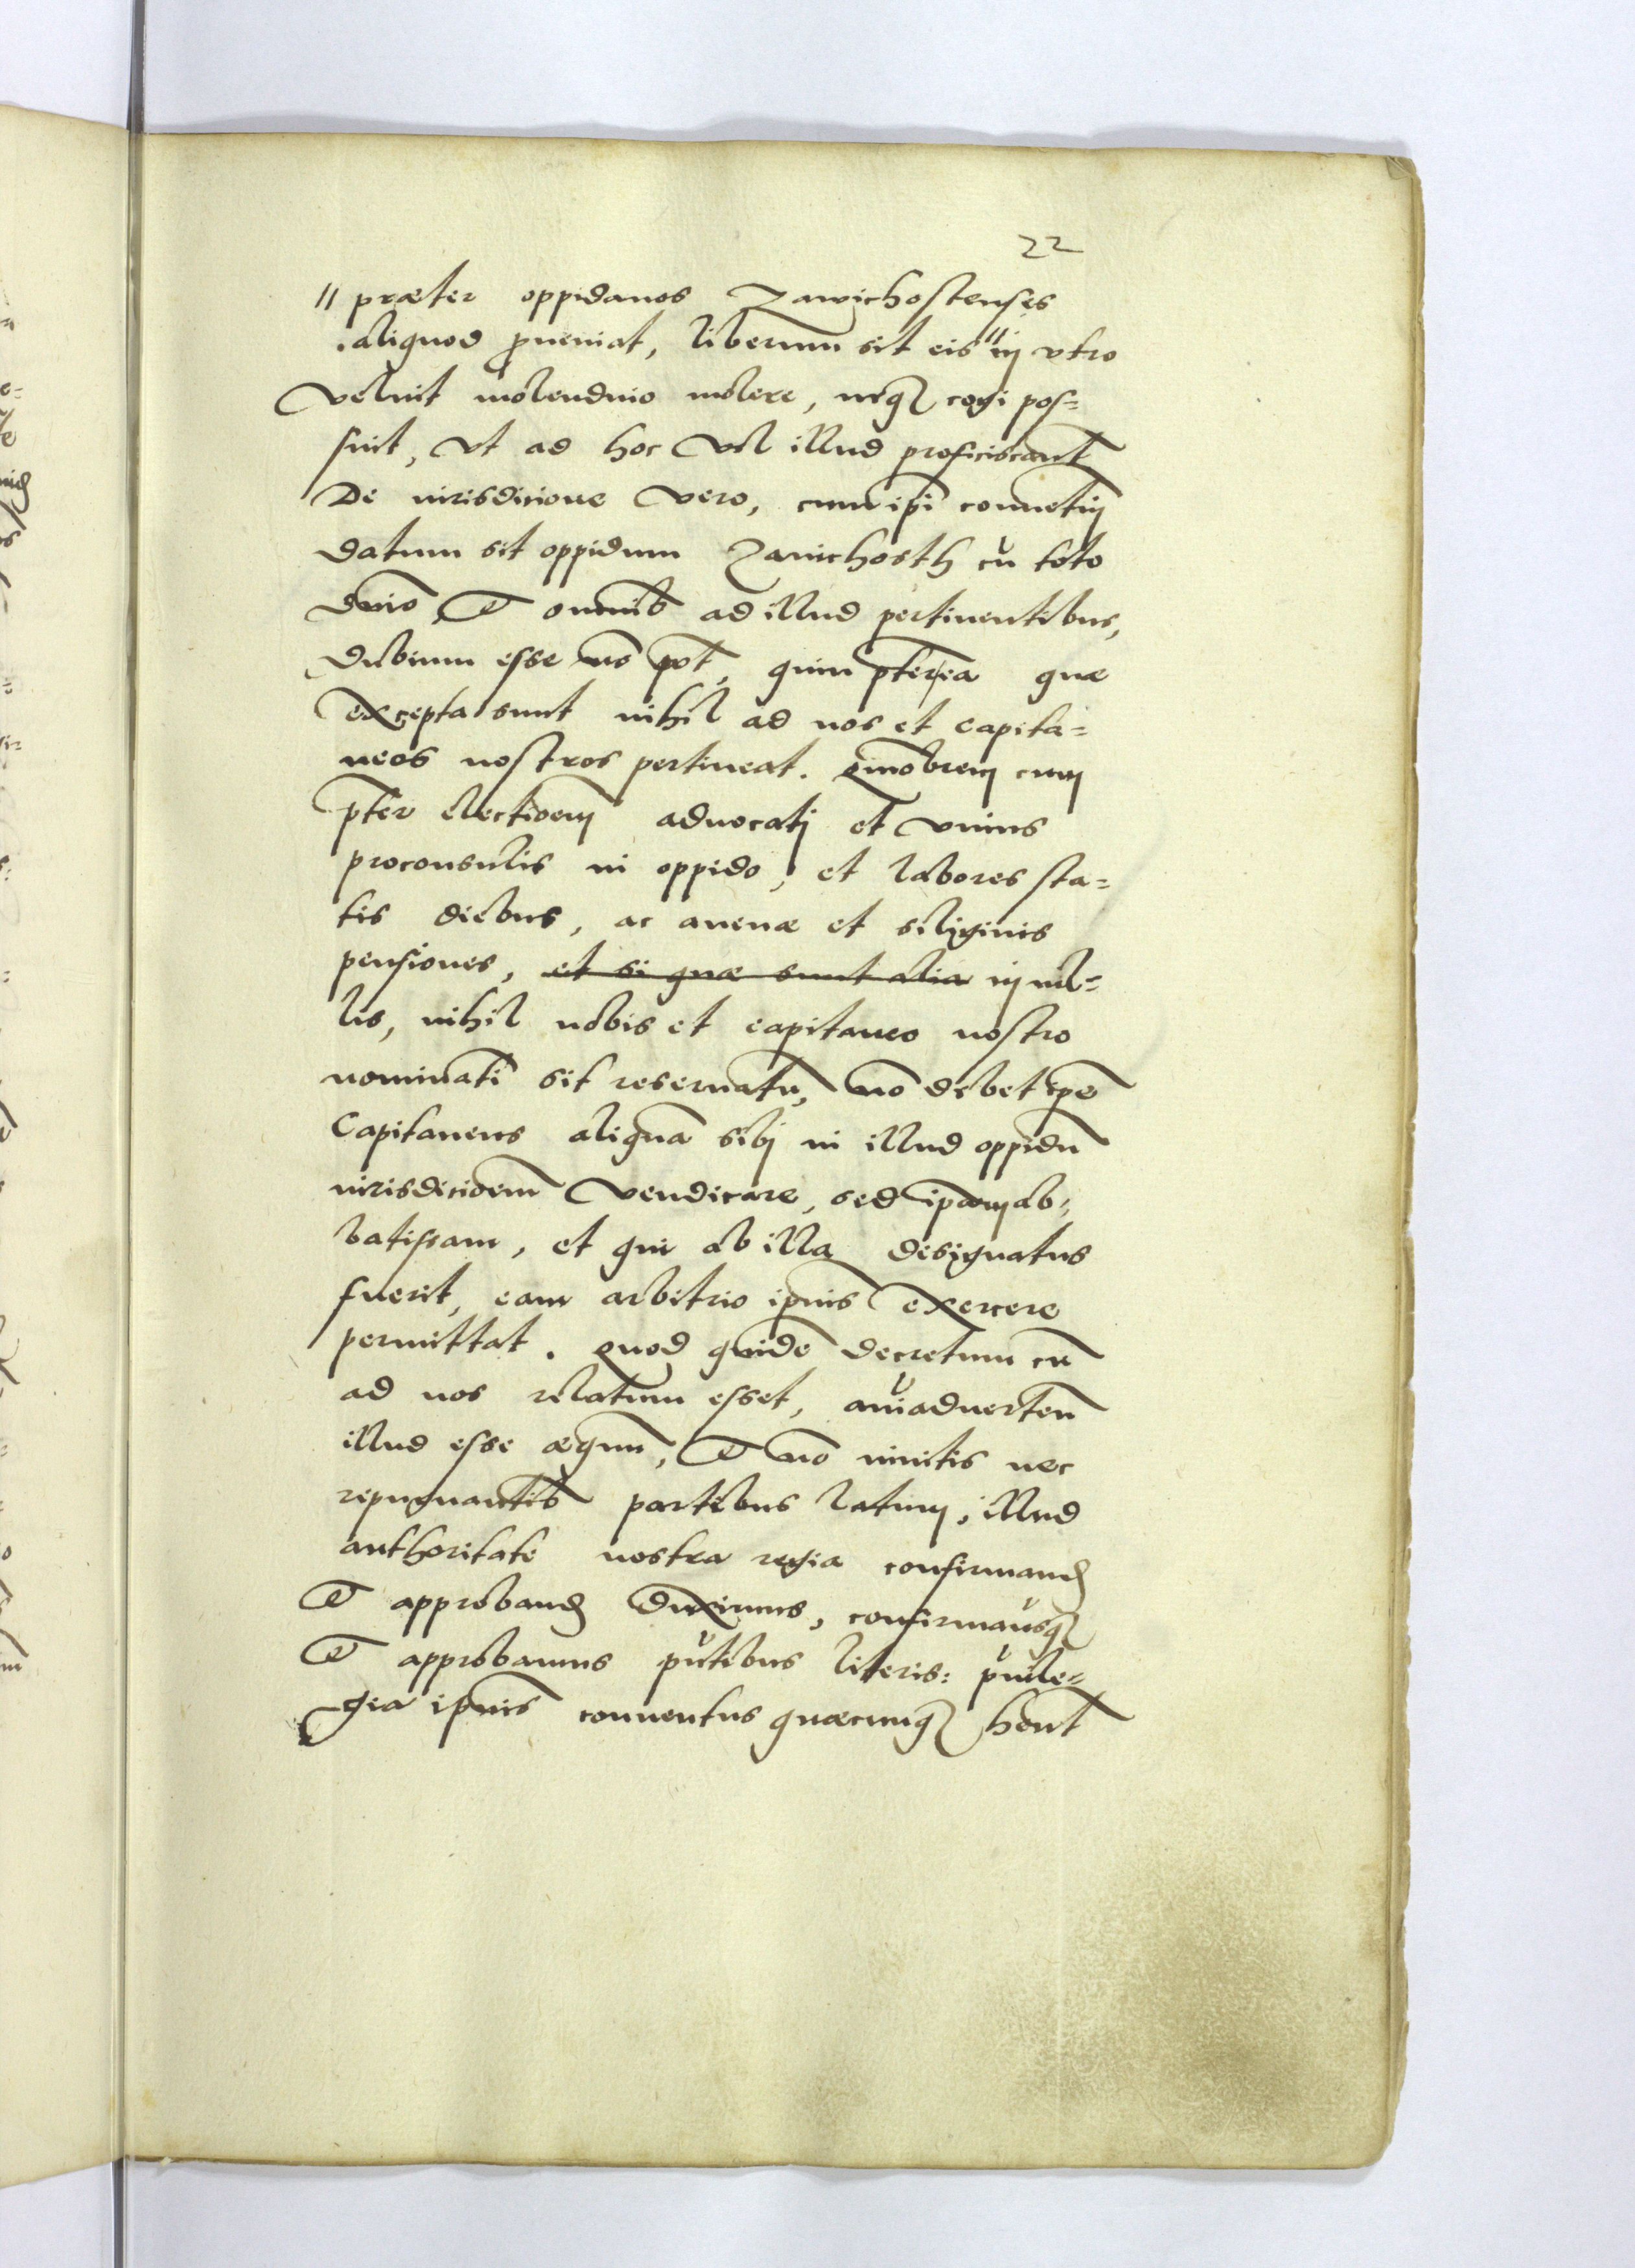 22
" præter oppidanos Zawichostenses
aliquod ꝓueniat, liberum sit eis " in vtro
velint molendino molere, neq₃ cogi pos=
sint, vt ad hoc vel illud proficiscant̃
De iurisdicione vero, cum ip̃i conuetuj
datum sit oppidum Zauichosth cũ toto
dnĩo et omnib̃ ad illud pertinentibus,
dubium esse nõ põt, quin p̃terea quæ
excepta sunt nihil ad nos et capita=
neos nostros pertineat. Quãobrem cum
p̃ter electioem advocati et vnius
proconsulis in oppido, et labores sta=
tis diebus, ac auenæ et siliginis
pensiones, et si quæ sunt alia in uil=
lis, nihil nobis et capitaneo nostro
nominati͂ sit reseruatũ, nõ debet ip̃e
Capitaneus aliquã sibj in illud oppidũ
iurisdicioem vendicare, sed ip̃am ab=
batissam, et qui ab illa designatus
fuerit, eam arbitrio ip̃ius exercere
permittat. Quod quidẽ decretum cũ
ad nos relatum esset, aĩaduerten̄
illud esse æquũ, et nõ inuitis nec
repugnantib̃ partibus latum, illud
authoritate nostra regia confirmand̃
et approband̃ duximus, confirmam̃usq₃
et approbamus p̃ntibus literis: p̃uile=
gia ip̃ius conuentus quæcunq₃ hẽnt